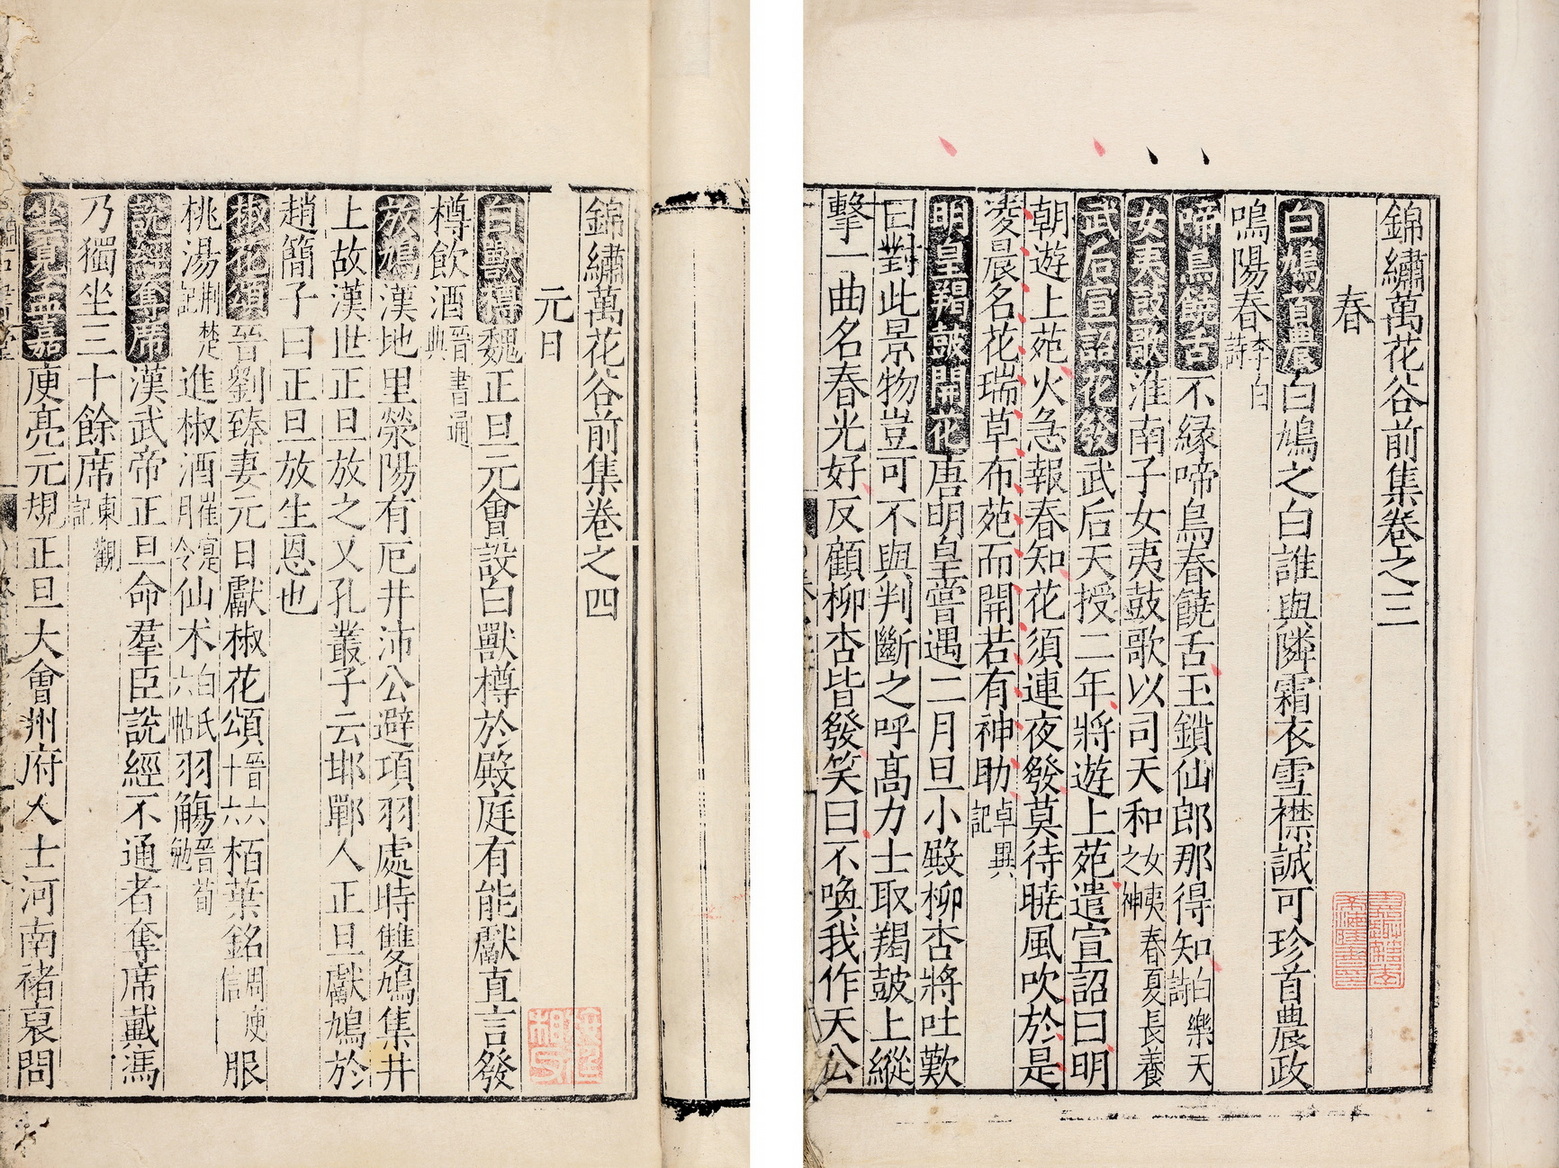 錦繡萬花谷前集卷之三
春
白鳩首農白鳩之白誰與隣霜衣雪襟誠可珍首農政
鳴陽春李白詩
啼鳥饒舌不緣啼鳥春饒舌玉鎖仙郎那得知白樂天詩
女夷鼓歌淮南子女夷鼓歌以司天和女夷春夏長養之神
武后宣詔花發武后天授二年將遊上苑遣宣詔曰明
朝遊上苑火急報春知花須連夜發莫待曉風吹於是
凌晨名花瑞草布苑而開若有神助卓異記
明皇羯鼓開花唐明皇嘗遇二月旦小殿柳杏將吐歎
曰對此景物豈可不與判斷之呼高力士取羯鼓上縱
擊一曲名春光好反顧柳杏皆發笑曰不喚我作天公
錦繡萬花谷前集卷之四
元日
白獸樽魏正旦元會設白獸樽於殿庭有能獻直言發
樽飲酒晉書通典
放鳩漢地里滎陽有厄井沛公避項羽處時雙鳩集井
上故漢世正旦放之又孔叢子云邯鄲人正旦獻鳩於
趙簡子曰正旦放生恩也
椒花頌晉劉臻妻元日獻椒花頌晉六十六栢葉銘周庾信服
桃湯荆楚記進椒酒崔寔月令仙术白氏六帖羽觴晉荀勉
說經奪席漢武帝正旦命羣臣說經不通者奪席戴馮
乃獨坐三十餘席東觀記
坐見孟嘉庾亮元規正旦大會州府人士河南褚裒問